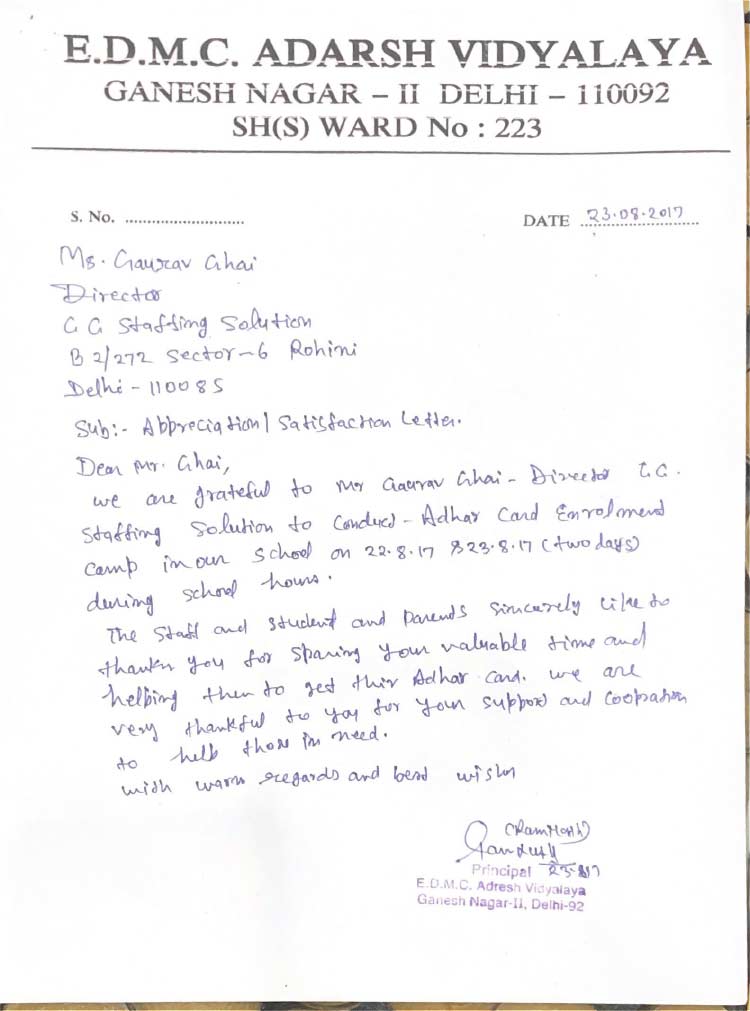 E.D.M.C. ADARSH VIDYALAYA
GANESH NAGAR – II DELHI – 110092
SH(S) WARD No : 223
S. No. ...........................
DATE 23.08.2017
Mr. Gaurav Ghai
Director
G G Staffing Solution
B 2/272 Sector-6 Rohini
Delhi - 110085
Sub:- Appreciation/ Satisfaction Letter.
Dear Mr. Ghai,
we are grateful to Mr Gaurav Ghai - Director G.G.
Staffing Solution to Conduct - Adhar Card Enrolment
Camp in our School on 22.8.17 & 23.8.17 (two days)
during school hours.
The Staff and student and Parents Sincerely like to
thank you for sparing your valuable time and
helping them to get thir Adhar card. we are
very thankful to you for your support and Cooperation
to help those in need.
with warm regards and best wishes
Principal 23-8-17
E.D.M.C. Adresh Vidyalaya
Ganesh Nagar-II, Delhi-92